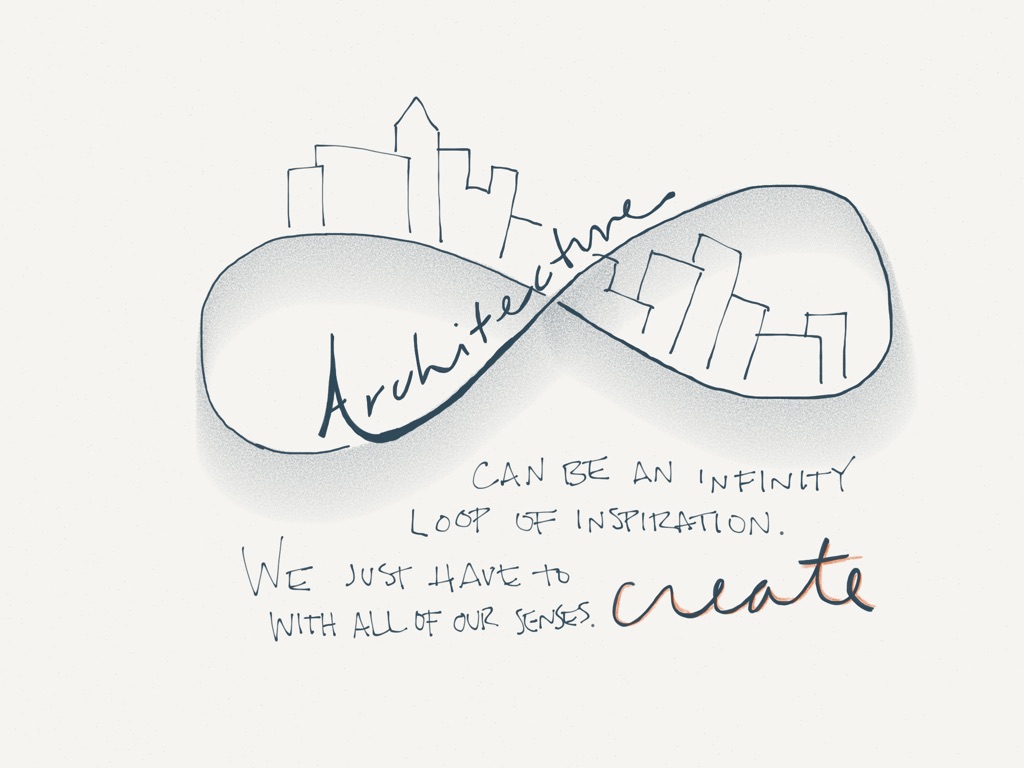 Architecture
CAN BE AN INFINITY
LOOP OF INSPIRATION.
WE JUST HAVE TO create
WITH ALL OF OUR SENSES.